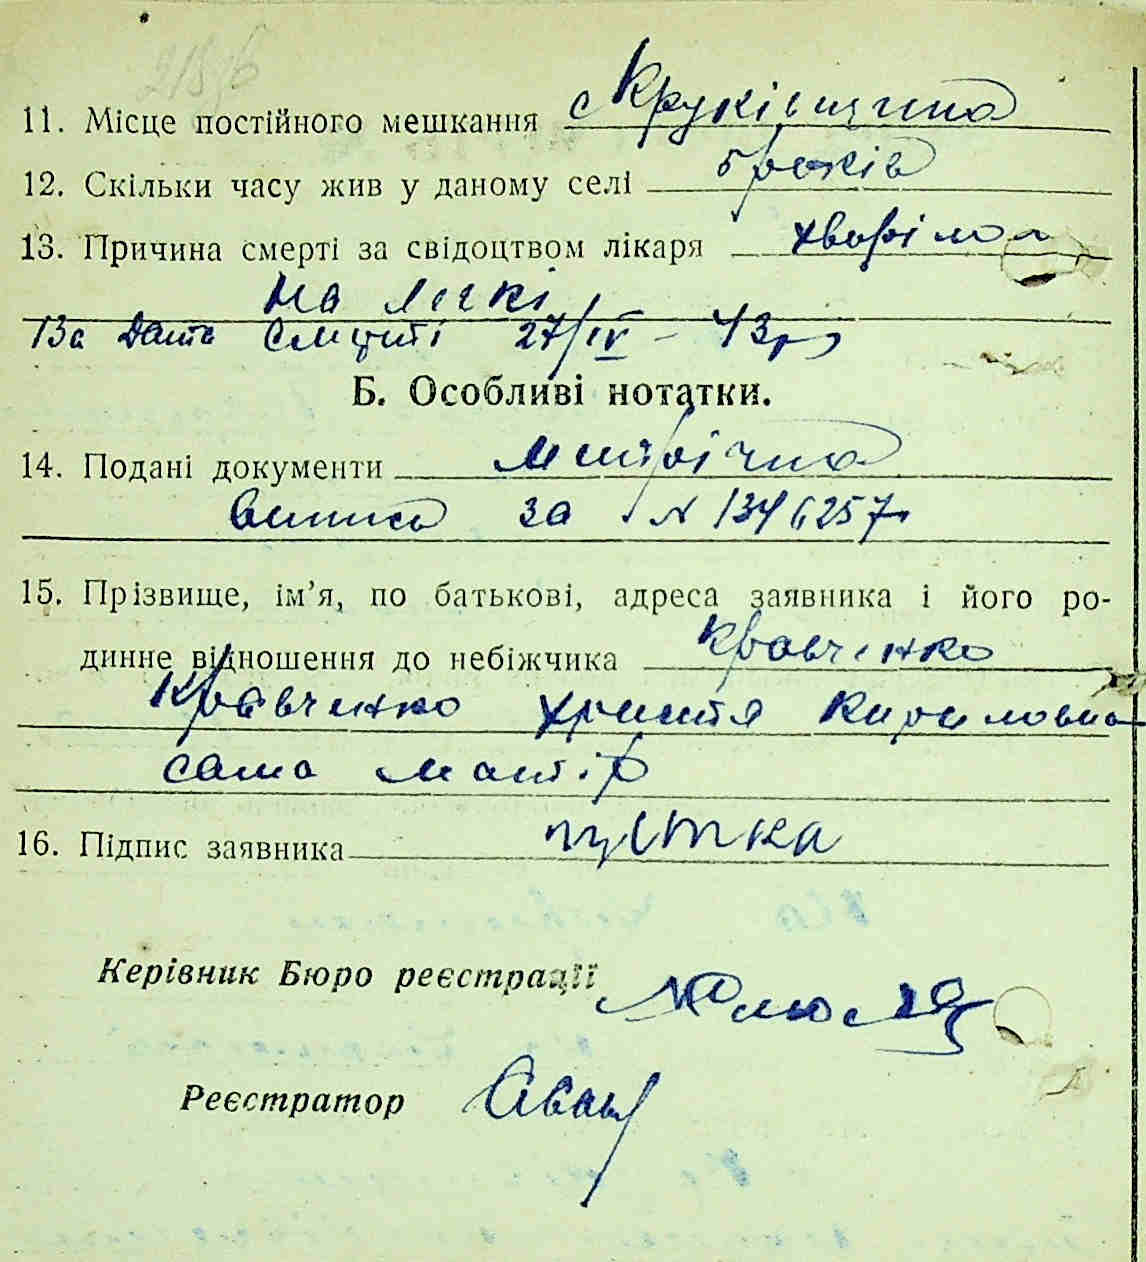 11. Місце постійного мешкання с Круківщина
12. Скільки часу жив у даному селі 5 років
13. Причина смерті за свідоцтвом лікаря хворіла
на легкі
13а Дата смерті 27/IV - 43 р
Б. Особливі нотатки.
14. Подані документи метрічна
випись за № 1346257
15. Прізвище, ім'я, по батькові, адреса заявника і його ро-
динне відношення до небіжчика Кравченко
Кравченко Христя Кириловна
сама матір
16. Підпис заявника
Керівник Бюро реєстрації
Реєстратор